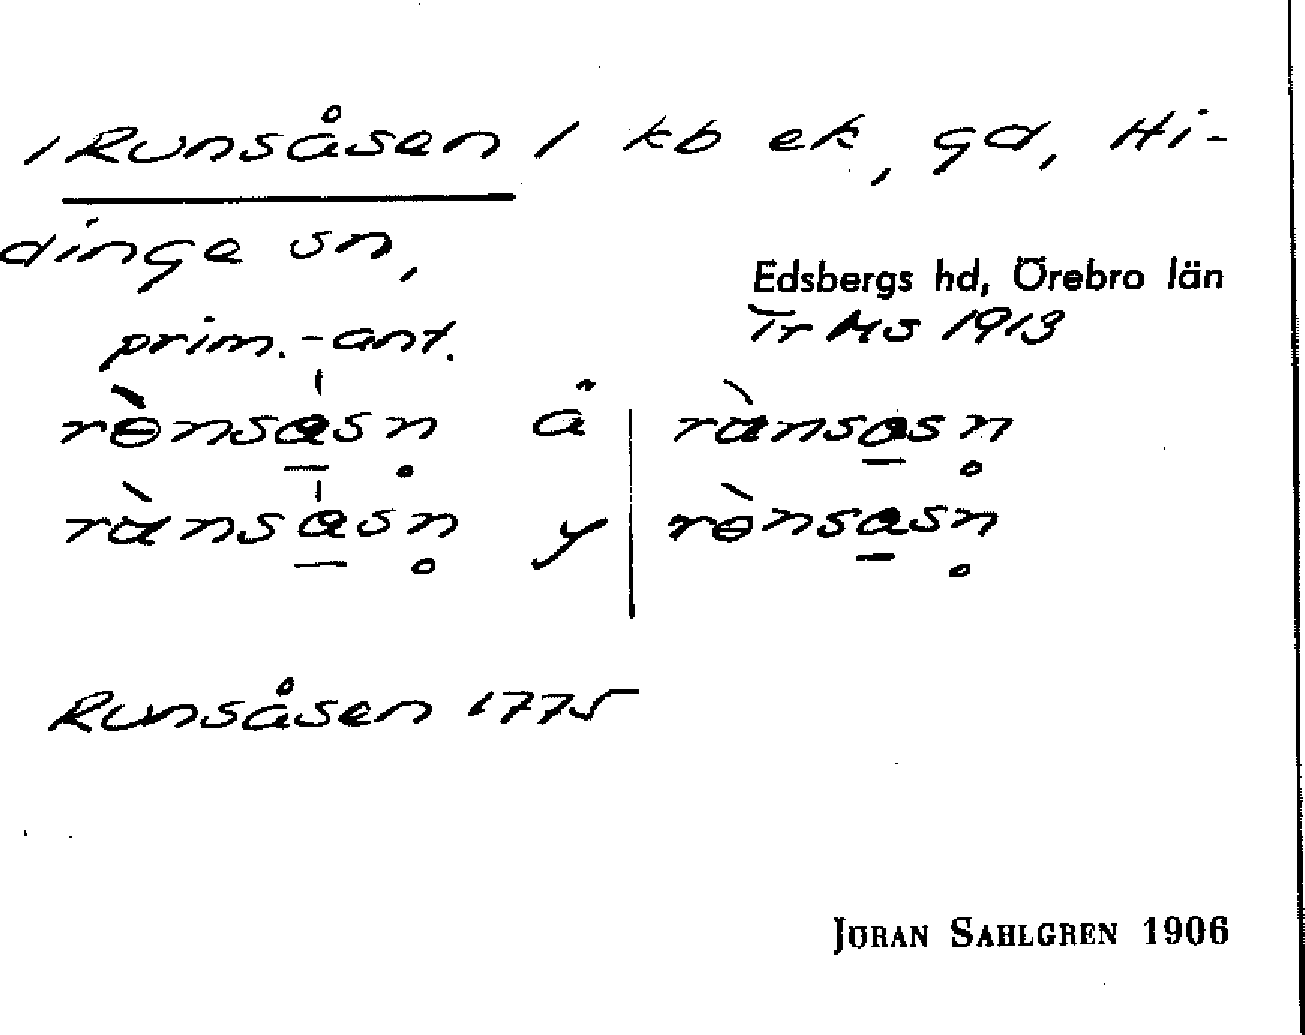 / Runsåsen / kb ek, gd, Hi-
dinge sn,
Edsbergs hd, Örebro län
Tr Ms 1913
prim.-ant.
rènsasn̥ ä | rànsasn̥
rànsasn̥ y | rènsasn̥
Runsåsen 1775
JÖRAN SAHLGREN 1906